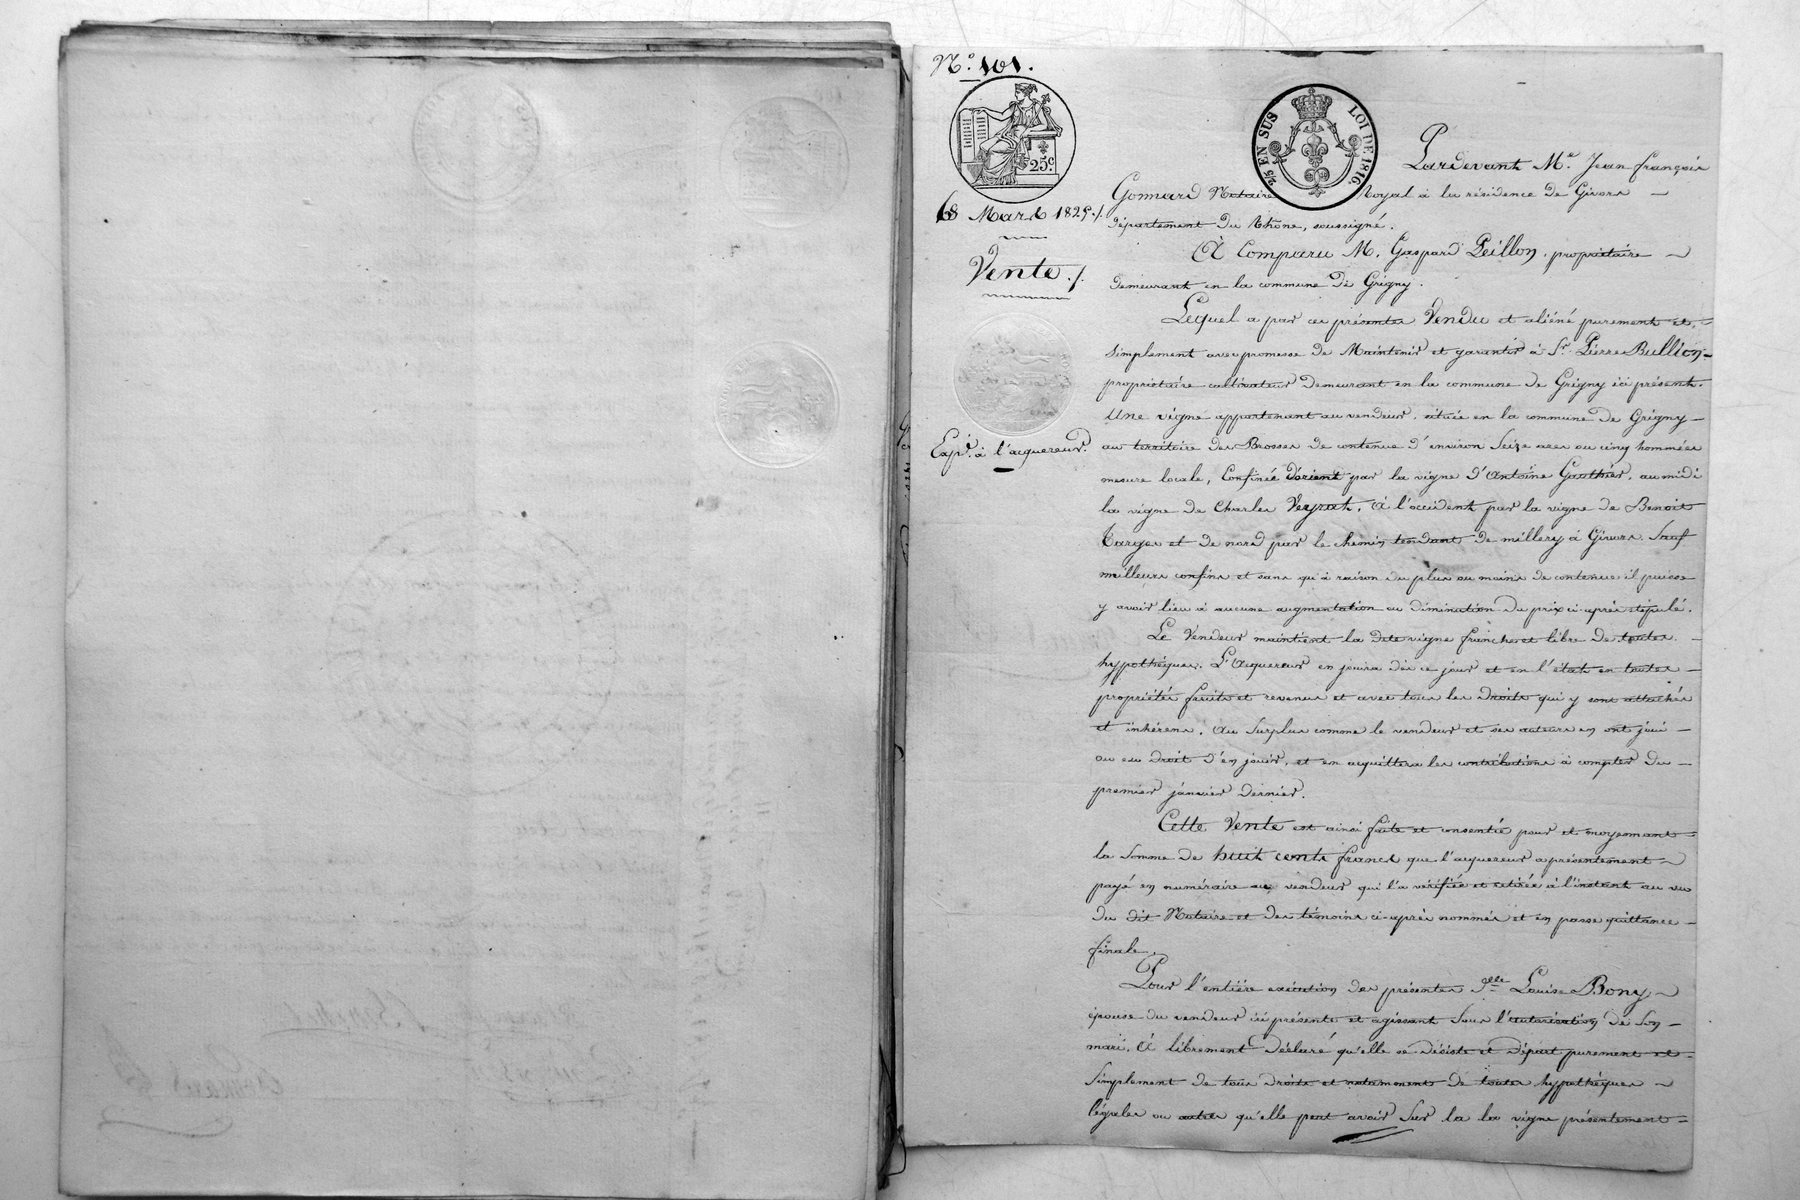 N.° 101.
25 c.
25 EN SUS LOI DE 1816.
8 Mars 1825./.
Vente./.
Exp.on à l'acquereur.
Pardevant M.e Jean françois
Gonnard Notaire Royal à la résidence de Givors
département du Rhône, soussigné.
A Comparu M. Gaspard Peillon, propriétaire
demeurant en la commune de Grigny.
Lequel a par ces présentes Vendu et aliéné purement et
simplement avec promesse de Maintenir et garantir à Sr. Pierre Bullion
propriétaire cultivateur demeurant en la commune de Grigny ici présent.
Une vigne appartenant au vendeur, située en la commune de Grigny
au territoire des Brosses de contenue d'environ Seize ares ou cinq hommées
mesure locale, Confinée d'orient par la vigne d'Antoine Gauthier, au midi
la vigne de Charles Veyrat, à l'occident par la vigne de Benoit
Targes et de nord par le chemin tendant de millery à Givors. Sauf
meilleurs confins et sans qu'à raison du plus ou moins de contenue il puisse
y avoir lieu à aucune augmentation ou diminution du prix ci-après stipulé.
Le Vendeur maintient la dite vigne franche et libre de toutes
hypothèques. L'Acquereur en jouira dès ce jour et en l'état en toutes
propriétés fruits et revenus et avec tous les droits qui y sont attachés
et inhérens, au Surplus comme le vendeur et ses auteurs en ont joui
ou eu droit d'en jouir, et en acquittera les contributions à compter du
premier janvier dernier.
Cette Vente est ainsi faite et consentie pour et moyennant
la Somme de huit cents francs que l'acquereur a présentement
payé en numéraire au vendeur qui l'a vérifiée et retirée à l'instant au vu
du dit Notaire et des témoins ci-après nommés et en passe quittance
finale.
Pour l'entière exécution des présentes d.elle Louise Bony
épouse du vendeur ici présente et agissant Sous l'autorisation de Son
mari, A librement déclaré qu'elle se désiste et départ purement et
Simplement de tous droits et notamment de toutes hypothèques
légales ou autres qu'elle peut avoir Sur la la vigne présentement